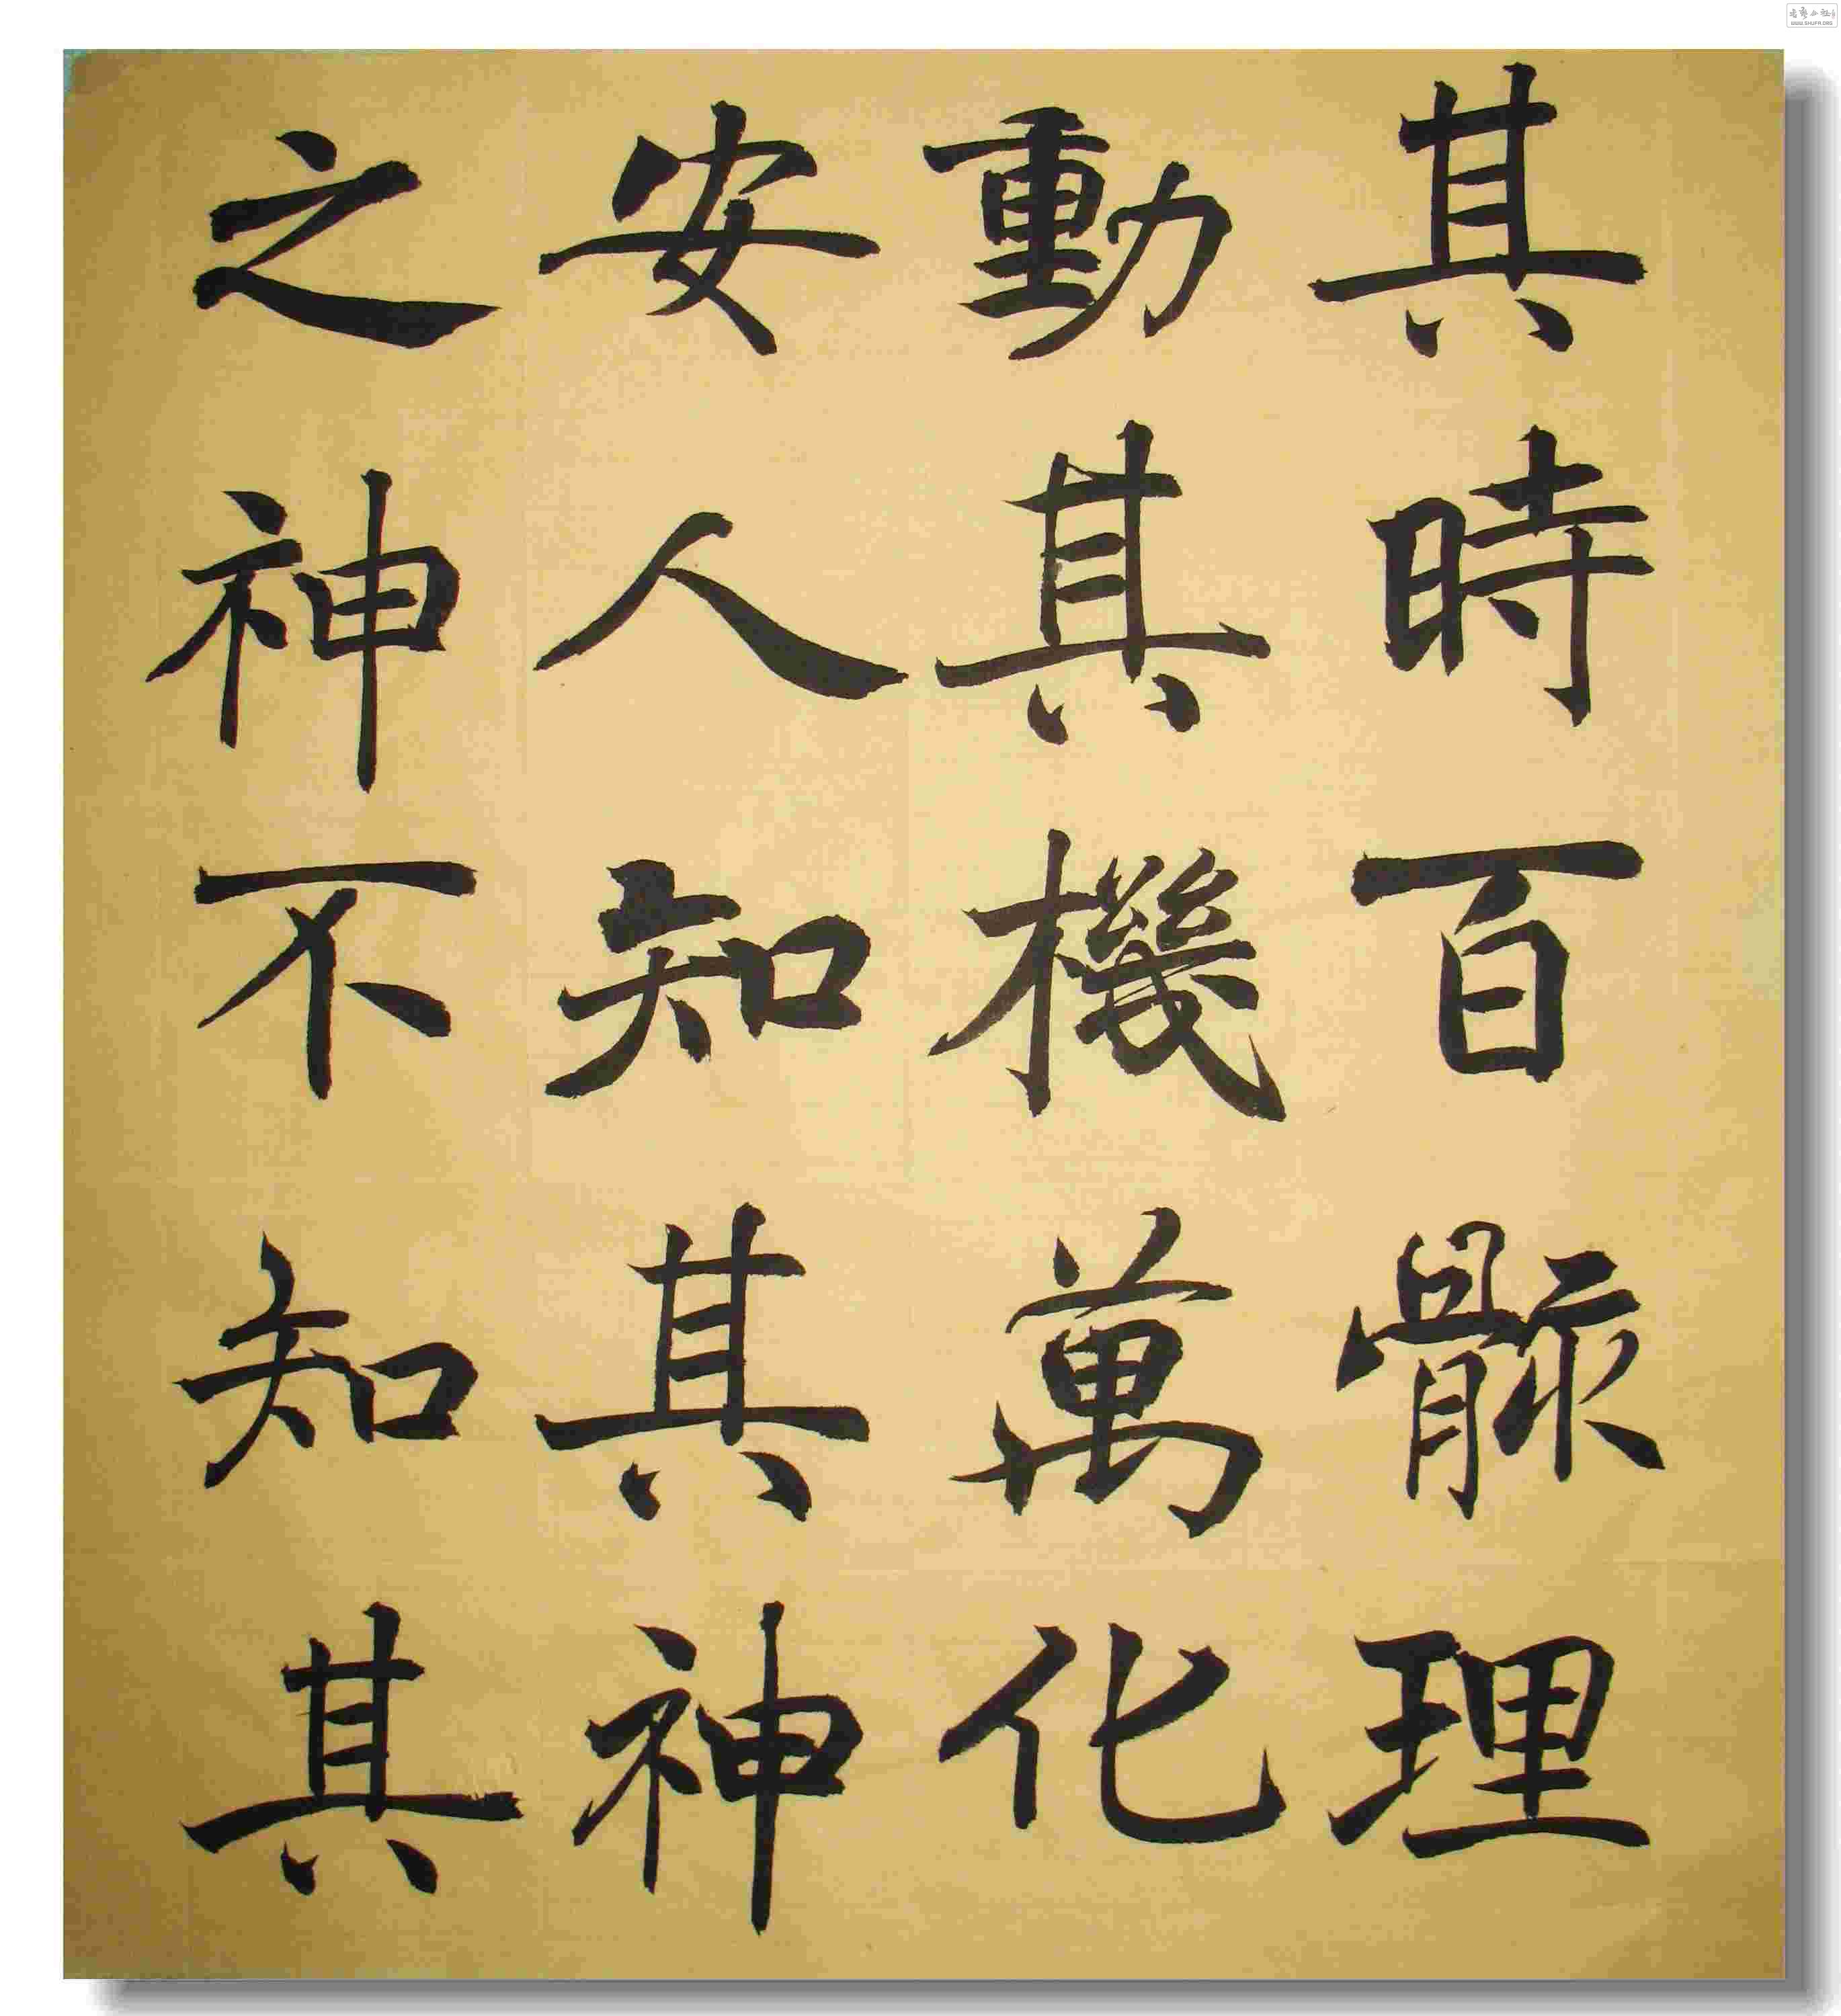 其時百骸理
動其機萬化
安人知其神
之神不知其
WWW.SHUFA.ORG